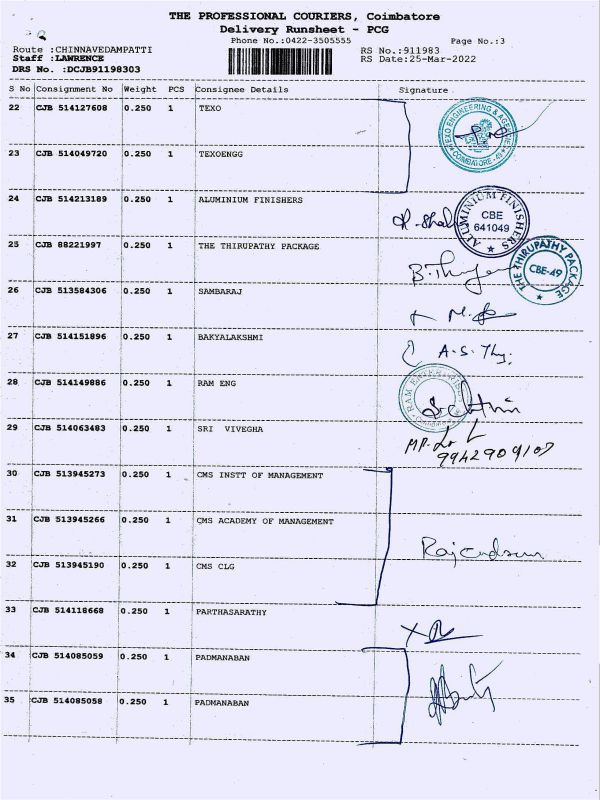 THE PROFESSIONAL COURIERS, Coimbatore
Delivery Runsheet - PCG
Phone No.:0422-3505555 Page No.:3
Route :CHINNAVEDAMPATTI RS No.:911983
Staff :LAWRENCE RS Date:25-Mar-2022
DRS No. :DCJB91198303
S No Consignment No Weight PCS Consignee Details Signature
22 CJB 514127608 0.250 1 TEXO
TEXO ENGINEERING & AGENCIE
COIMBATORE-49
23 CJB 514049720 0.250 1 TEXOENGG
24 CJB 514213189 0.250 1 ALUMINIUM FINISHERS
ALUMINIUM FINISHERS
CBE
641049
25 CJB 88221997 0.250 1 THE THIRUPATHY PACKAGE
THE THIRUPATHY PACKAGE
CBE-49
26 CJB 513584306 0.250 1 SAMBARAJ
27 CJB 514151896 0.250 1 BAKYALAKSHMI
A.S.Thy.
28 CJB 514149886 0.250 1 RAM ENG
RAM ENTERPRISES
29 CJB 514063483 0.250 1 SRI VIVEGHA
9942909107
30 CJB 513945273 0.250 1 CMS INSTT OF MANAGEMENT
31 CJB 513945266 0.250 1 CMS ACADEMY OF MANAGEMENT
32 CJB 513945190 0.250 1 CMS CLG
33 CJB 514118668 0.250 1 PARTHASARATHY
34 CJB 514085059 0.250 1 PADMANABAN
35 CJB 514085058 0.250 1 PADMANABAN